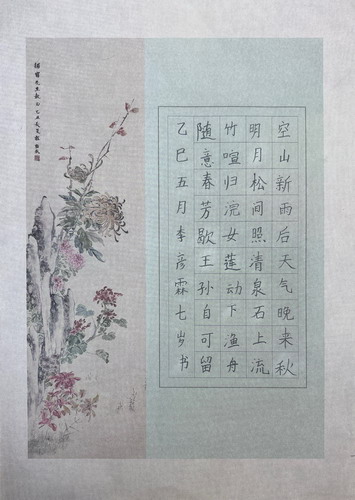 空山新雨后天气晚来秋
明月松间照清泉石上流
竹喧归浣女莲动下渔舟
随意春芳歇王孙自可留
乙巳五月李彦霖七岁书